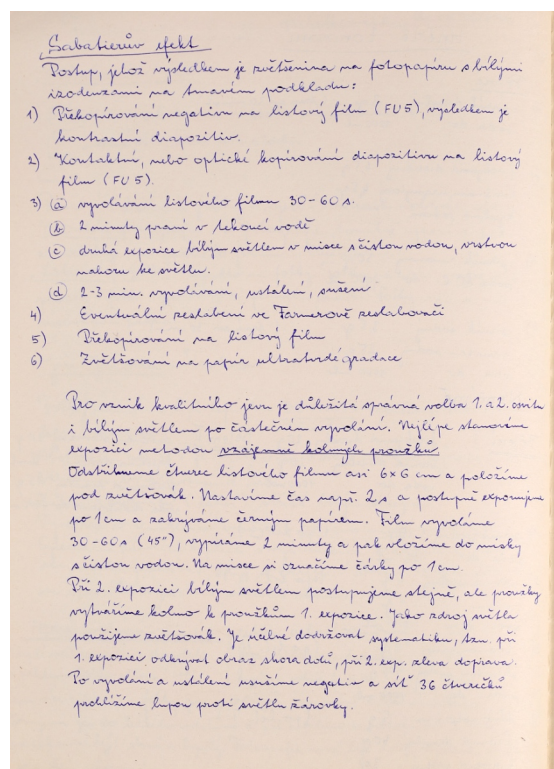 Sabatierův efekt
Postup, jehož výsledkem je zvětšenina na fotopapíru s bílými
izodenzami na tmavém podkladu:
1) Překopírování negativu na listový film (FU5), výsledkem je
kontrastní diapozitiv.
2) Kontaktní, nebo optické kopírování diapozitivu na listový
film (FU5).
3) a vyvolávání listového filmu 30-60 s.
b 2 minuty praní v tekoucí vodě
c druhá expozice bílým světlem v misce s čistou vodou, vrstvou
nahoru ke světlu.
d 2-3 min. vyvolávání, ustálení, sušení
4) Eventuální zeslabení ve Farmerově zeslabovači
5) Překopírování na listový film
6) Zvětšování na papír ultratvrdé gradace
Pro vznik kvalitního jevu je důležitá správná volba 1. a 2. osvitu
i bílým světlem po částečném vyvolání. Nejlépe stanovíme
expozici metodou vzájemně kolmých proužků.
Odstřihneme čtverec listového filmu asi 6x6 cm a položíme
pod zvětšovák. Nastavíme čas např. 2 s a postupně exponujeme
po 1 cm a zakrýváme černým papírem. Film vyvoláme
30-60 s (45"), vypíráme 2 minuty a pak vložíme do misky
s čistou vodou. Na misce si označíme čárky po 1 cm.
Při 2. expozici bílým světlem postupujeme stejně, ale proužky
vytváříme kolmo k proužkům 1. expozice. Jako zdroj světla
použijeme zvětšovák. Je účelné dodržovat systematiku, tzn. při
1. expozici odkrývat obraz shora dolů, při 2. exp. zleva doprava.
Po vyvolání a ustálení usušíme negativ a síť 36 čtverečků
prohlížíme lupou proti světlu žárovky.